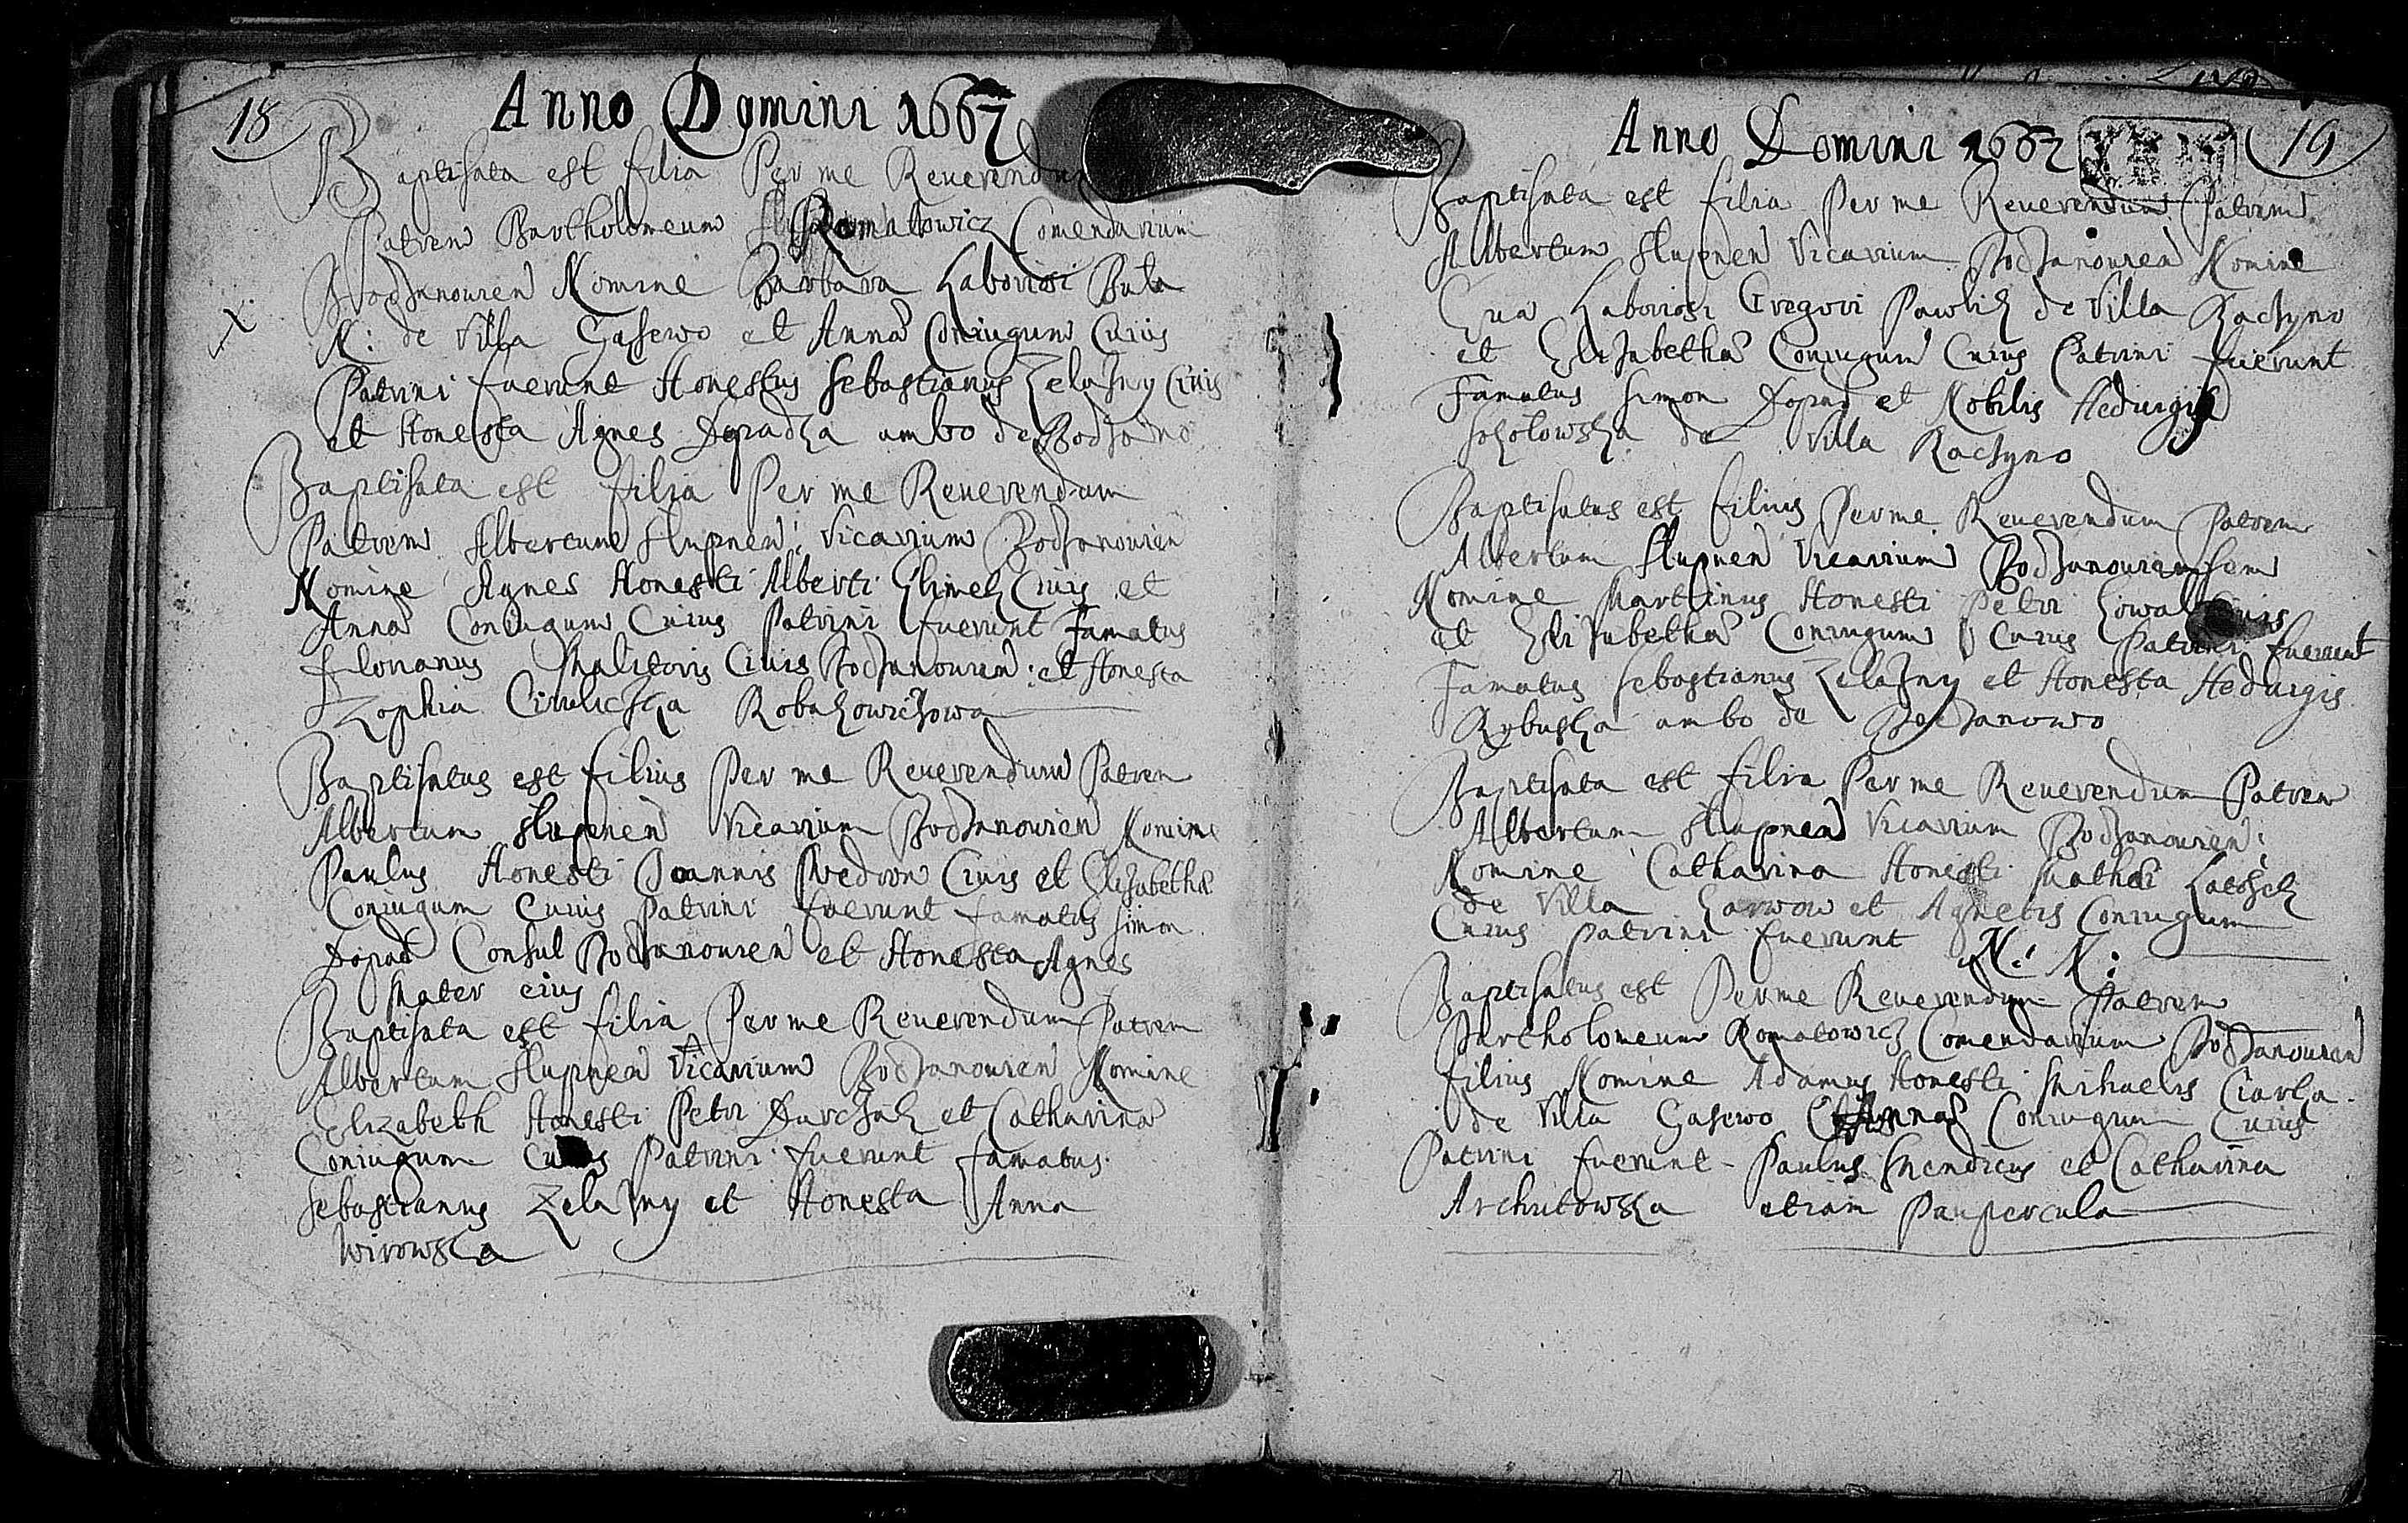 18
Anno Domini 1667
Baptisata est filia Per me Reuerendu
Patrem Bartholomeum Romatowicz Comendarium
Bodzanouien Nomine Barbara Laboriosi Bula
N: de Villa Gasewo et Anna Coniugum Cuius
Patrini fuerunt Honestus Sebastianus Zelazny Ciuis
et Honesta Agnes ambo de Bodzano
Baptisata est filia Per me Reuerendum
Patrem Albertum Slupnen: Vicarium Bodzanouien
Nomine Agnes Honesti Alberti Klimek Ciuis et
Anna Coniugum Cuius Patrini fuerunt Famatus
Florianus Ciuis Bodzanouien: et Honesta
Zophia
Baptisatus est filius Per me Reuerendum Patrem
Albertum Slupnen Vicarium Bodzanouien Nomine
Paulus Honesti Joannis Ciuis et Elisabetha
Coniugum Cuius Patrini fuerunt famatus Simon
Dopad Consul Bodzanouien et Honesta Agnes
Mater eius
Baptisata est filia Per me Reuerendum Patrem
Albertum Slupnen Vicarium Bodzanouien Nomine
Elizabeth Honesti Petri et Catharina
Coniugum Patrini fuerunt famatus
Sebastianus Zelazny et Honesta Anna
Wirowska
19
Anno Domini 1667
Baptisata est filia Per me Reuerendum Patrem
Albertum Slupnen Vicarium Bodzanouien Nomine
Eua Laboriosi Gregori Pawlik de Villa Raczyno
et Elizabetha Coniugum Cuius Patrini fuerunt
Famatus Simon Dopad et Nobilis Heduigis
Sokolowska de Villa Raczyno
Baptisatus est filius Per me Reuerendum Patrem
Albertum Slupnen Vicarium Bodzanouiensem
Nomine Martinus Honesti Petri Kowal Ciuis
et Elizabetha Coniugum Cuius Patrini fuerunt
Famatus Sebastianus Zelazny et Honesta Heduigis
ambo de Bodzanowo
Baptisata est filia Per me Reuerendum Patrem
Albertum Slupnen Vicarium Bodzanouien:
Nomine Catharina Honesti Mathei
de Villa et Agnetis Coniugum
Cuius patrini fuerunt N: N:
Baptisatus est Per me Reuerendum Patrem
Bartholomeum Romatowicz Comendarium Bodzanouien
filius Nomine Adamus Honesti Mihaelis
de Villa Gasewo Anna Coniugum Cuius
Patrini fuerunt Paulus Mendicus et Catharina
Archutowska etiam Paupercula